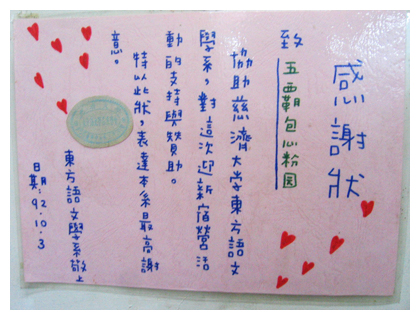 感謝狀
致 五霸包心粉圓
協助慈濟大学東方語文
學系。對這次迎新宿營活
動的支持與贊助。
特以此狀。表達本系最高謝
意。
東方語文學系敬上
日期:92.10.3